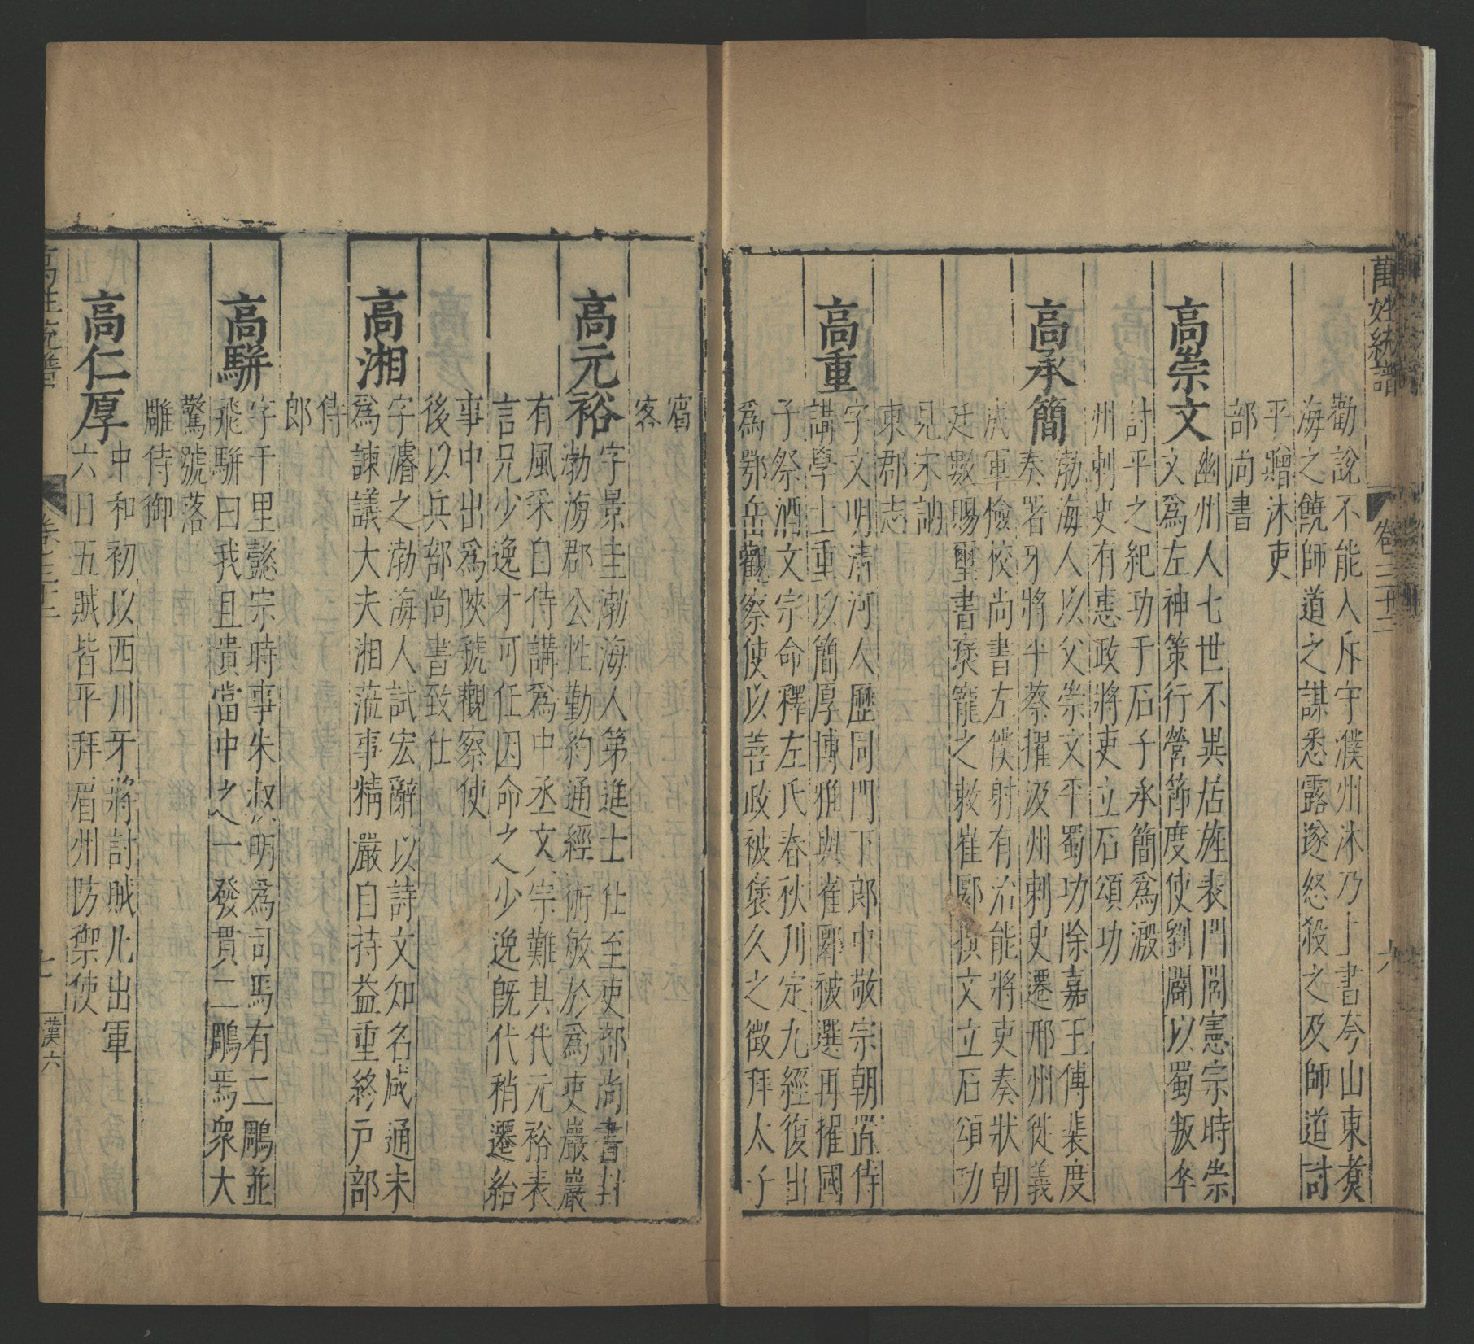 萬姓統譜 卷三十二 六
勸說不能入斥守濮州沐乃上書夸山東煑
海之饒師道之謀悉露遂怒殺之及師道討
平贈沐吏
部尚書
高崇文 幽州人七世不異居旌表門閭憲宗時崇
文爲左神策行營節度使劉闢以蜀叛率
討平之紀功于石子承簡爲澱
州刺史有惠政將吏立石頌功
高承簡 渤海人以父崇文平蜀功除嘉王傅裴度
奏署牙將平蔡擢汲州刺史遷邢州徙義
成軍檢校尚書左僕射有治能將吏奏狀朝
廷數賜璽書褒寵之敕崔郾撰文立石頌功
見宋訥
東郡志
高重 字文明清河人歷同門下郎中敬宗朝置侍
講學士重以簡厚博雅與崔郾被選再擢國
子祭酒文宗命釋左氏春秋刋定九經復出
爲鄂岳觀察使以善政被褒久之徵拜太子
賓
客
高元裕 字景圭渤海人第進士仕至吏部尚書封
渤海郡公性勤約通經術敏於爲吏巖巖
有風采自侍講爲中丞文宗難其代元裕表
言兄少逸才可任因命之人少逸旣代稍遷給
事中出爲陝虢觀察使
後以兵部尚書致仕
高湘 字濬之渤海人試宏辭以詩文知名咸通末
爲諫議大夫湘蒞事精嚴自持益重終戸部
侍
郎
高駢 字千里懿宗時事朱叔明爲司馬有二鵰並
飛駢曰我且貴當中之一發貫二鵰焉衆大
驚號落
鵰侍御
高仁厚 中和初以西川牙將討賊凡出軍
六日五賊皆平拜眉州防禦使
萬姓統譜 卷三十二 七 漢六